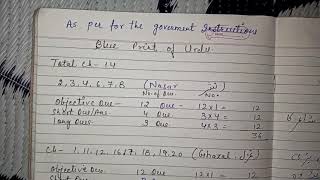 As per for the goverment Instructions
Blue Print of Urdu
Total ch - 14
2, 3, 4, 6, 7, 8 (Nasar نثر)
No. of Que. No.
Objective Que - 12 Que - 12x1 = 12
Short Que/Ans - 4 Que - 3x4 = 12
long Ques - 3 Que - 4x3 = 12
36
Ch - 1, 11, 12, 16, 17, 18, 19, 20 (Ghazal غزل)
Objective Que - 12 Que - 12x1 = 12